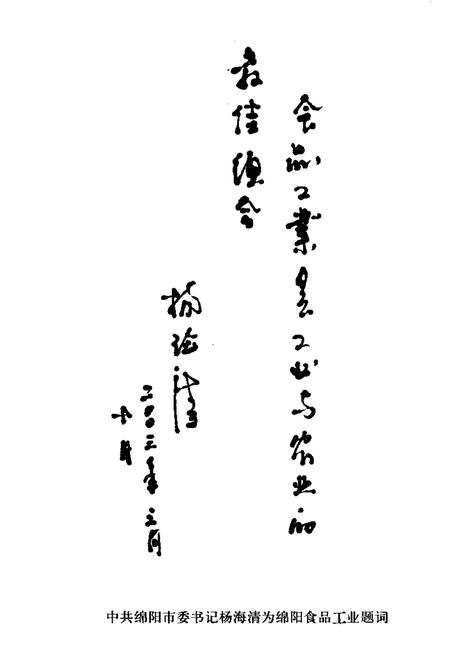 食品工業是工业与农业的
最佳合
杨海清
二〇〇三年三月
中共绵阳市委书记杨海清为绵阳食品工业题词